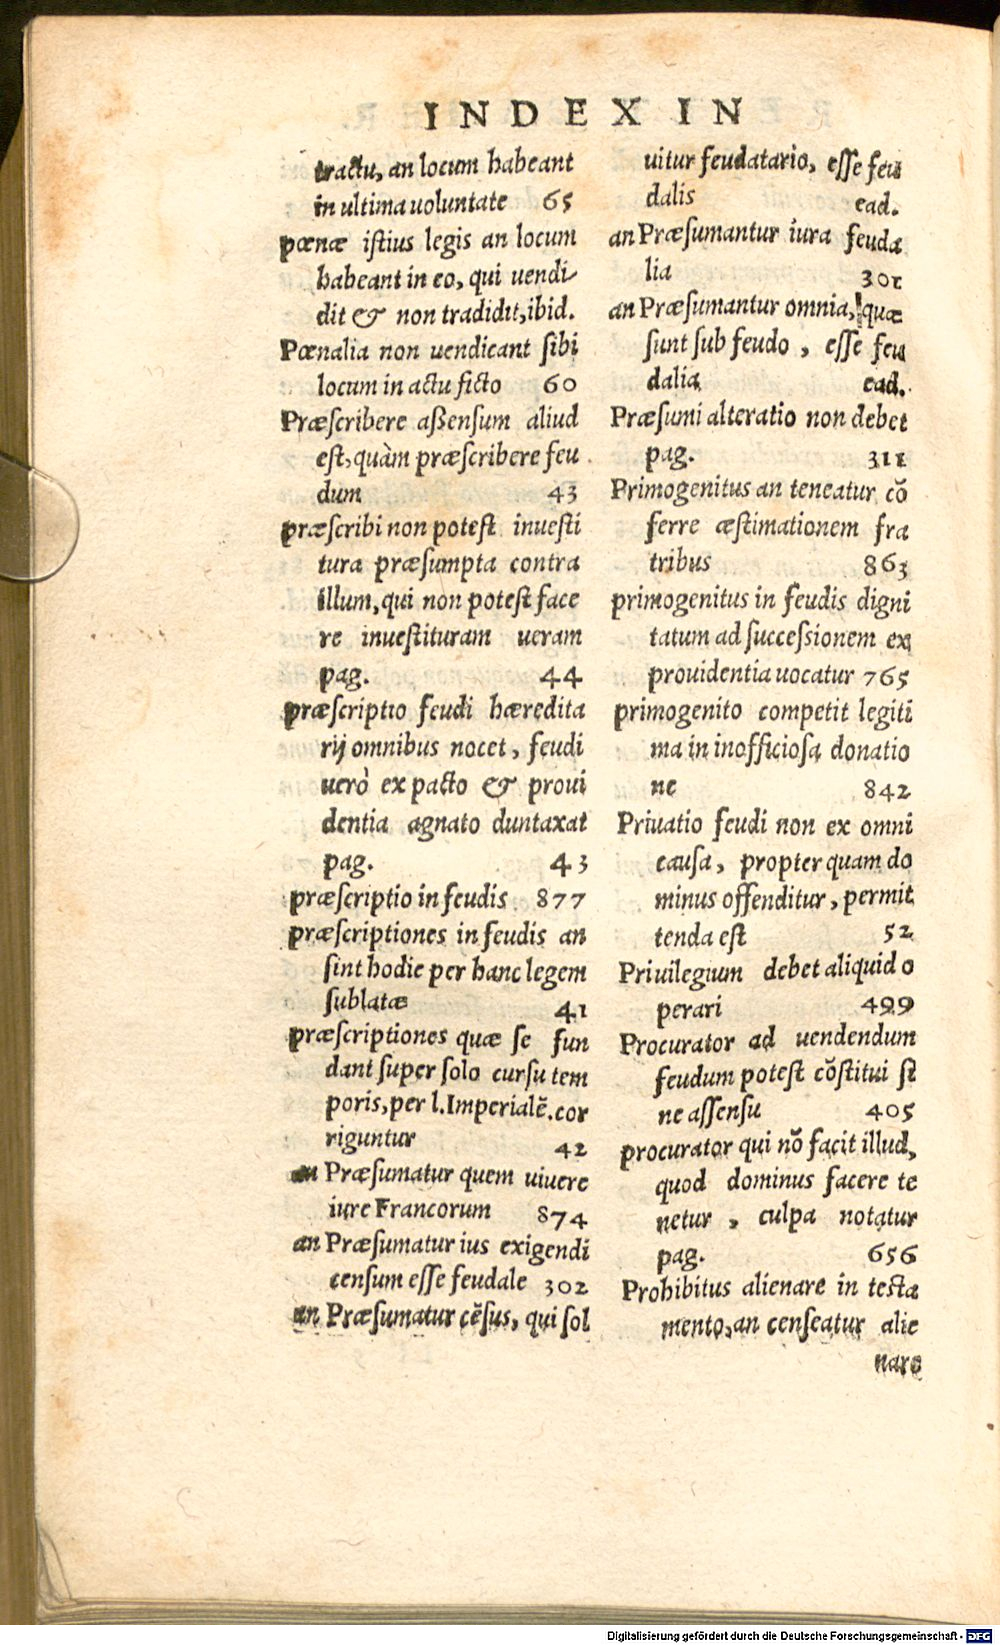 INDEX IN
tractu, an locum habeant
in ultima uoluntate 65
pœnæ iſtius legis an locum
habeant in eo, qui uendi
dit & non tradidit, ibid.
Pœnalia non uendicant ſibi
locum in actu ficto 60
Præſcribere aſſenſum aliud
eſt, quàm præſcribere feu
dum 43
præſcribi non poteſt inueſti
tura præſumpta contra
illum, qui non poteſt face
re inueſtituram ueram
pag. 44
præſcriptio feudi hæredita
rij omnibus nocet, feudi
uerò ex pacto & proui
dentia agnato duntaxat
pag. 43
præſcriptio in feudis 877
præſcriptiones in feudis an
ſint hodie per hanc legem
ſublatæ 41
præſcriptiones quæ ſe fun
dant ſuper ſolo curſu tem
poris, per l. Imperialē. cor
riguntur 42
an Præſumatur quem uiuere
iure Francorum 874
an Præſumatur ius exigendi
cenſum eſſe feudale 302
an Præſumatur cēſus, qui ſol
uitur feudatario, eſſe feu
dalis ead.
an Præſumantur iura feuda
lia 301
an Præſumantur omnia, quæ
ſunt ſub feudo, eſſe feu
dalia ead.
Præſumi alteratio non debet
pag. 311
Primogenitus an teneatur cō
ferre æſtimationem fra
tribus 863
primogenitus in feudis digni
tatum ad ſucceſſionem ex
prouidentia uocatur 765
primogenito competit legiti
ma in inofficioſa donatio
ne 842
Priuatio feudi non ex omni
cauſa, propter quam do
minus offenditur, permit
tenda eſt 52
Priuilegium debet aliquid o
perari 499
Procurator ad uendendum
feudum poteſt cōſtitui ſi
ne aſſenſu 405
procurator qui nō facit illud,
quod dominus facere te
netur, culpa notatur
pag. 656
Prohibitus alienare in teſta
mento, an cenſeatur alie
nare
Digitalisierung gefördert durch die Deutsche Forschungsgemeinschaft - DFG